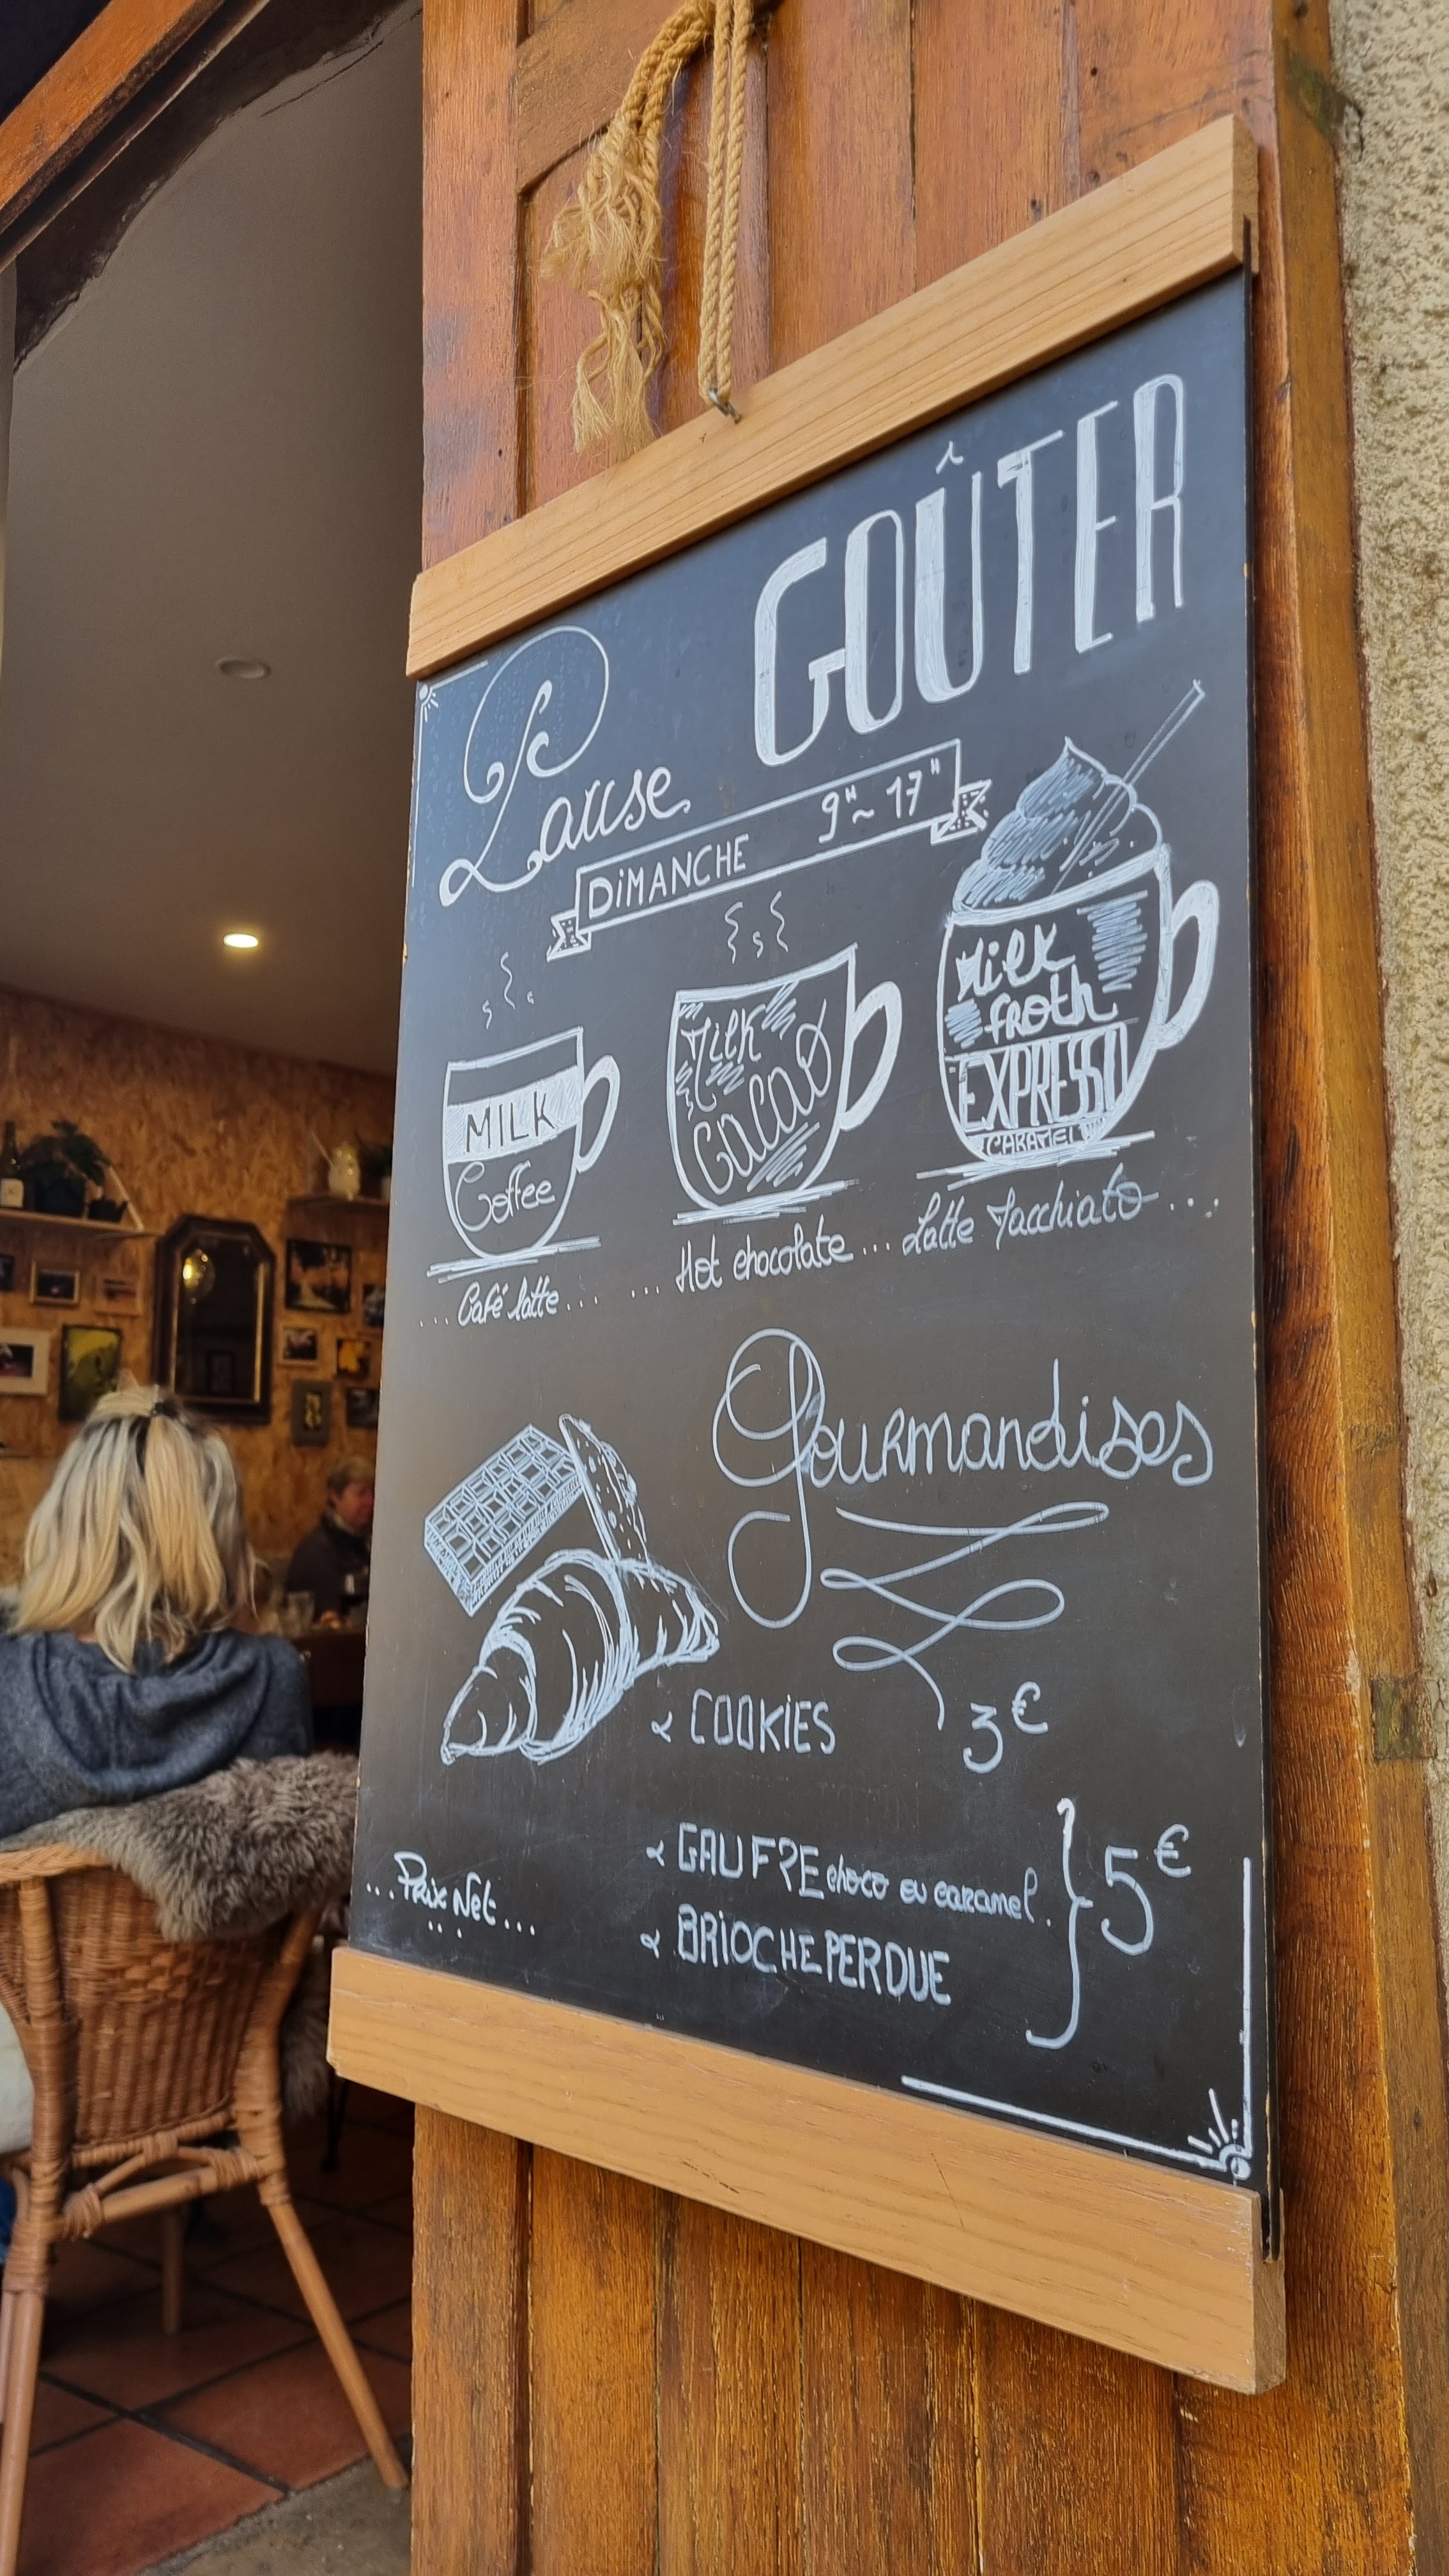 Pause GOÛTER
DIMANCHE 9H~17H
MILK
Coffee
Milk
Cacao
Milk
froth
EXPRESSO
CARAMEL
... Café latte ... ... Hot chocolate ... Latte Macchiato ...
Gourmandises
COOKIES 3€
GAUFRE choco ou caramel. } 5€
BRIOCHE PERDUE
... Prix Net ...